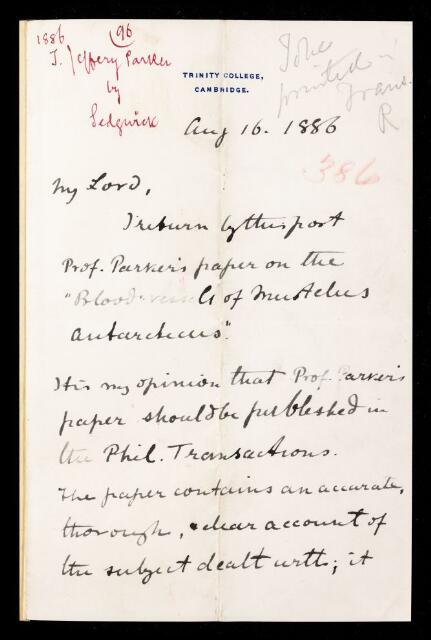 1886
96
T. Jeffery Parker
by
Sedgwick
To be
printed in
Trans.
R
TRINITY COLLEGE,
CAMBRIDGE.
Aug 16. 1886
386
My Lord,
I return by this post
Prof. Parker's paper on the
"Blood vessels of Mustelus
antarcticus".
It is my opinion that Prof. Parker's
paper should be published in
the Phil. Transactions.
The paper contains an accurate,
thorough, clear account of
the subject dealt with; it